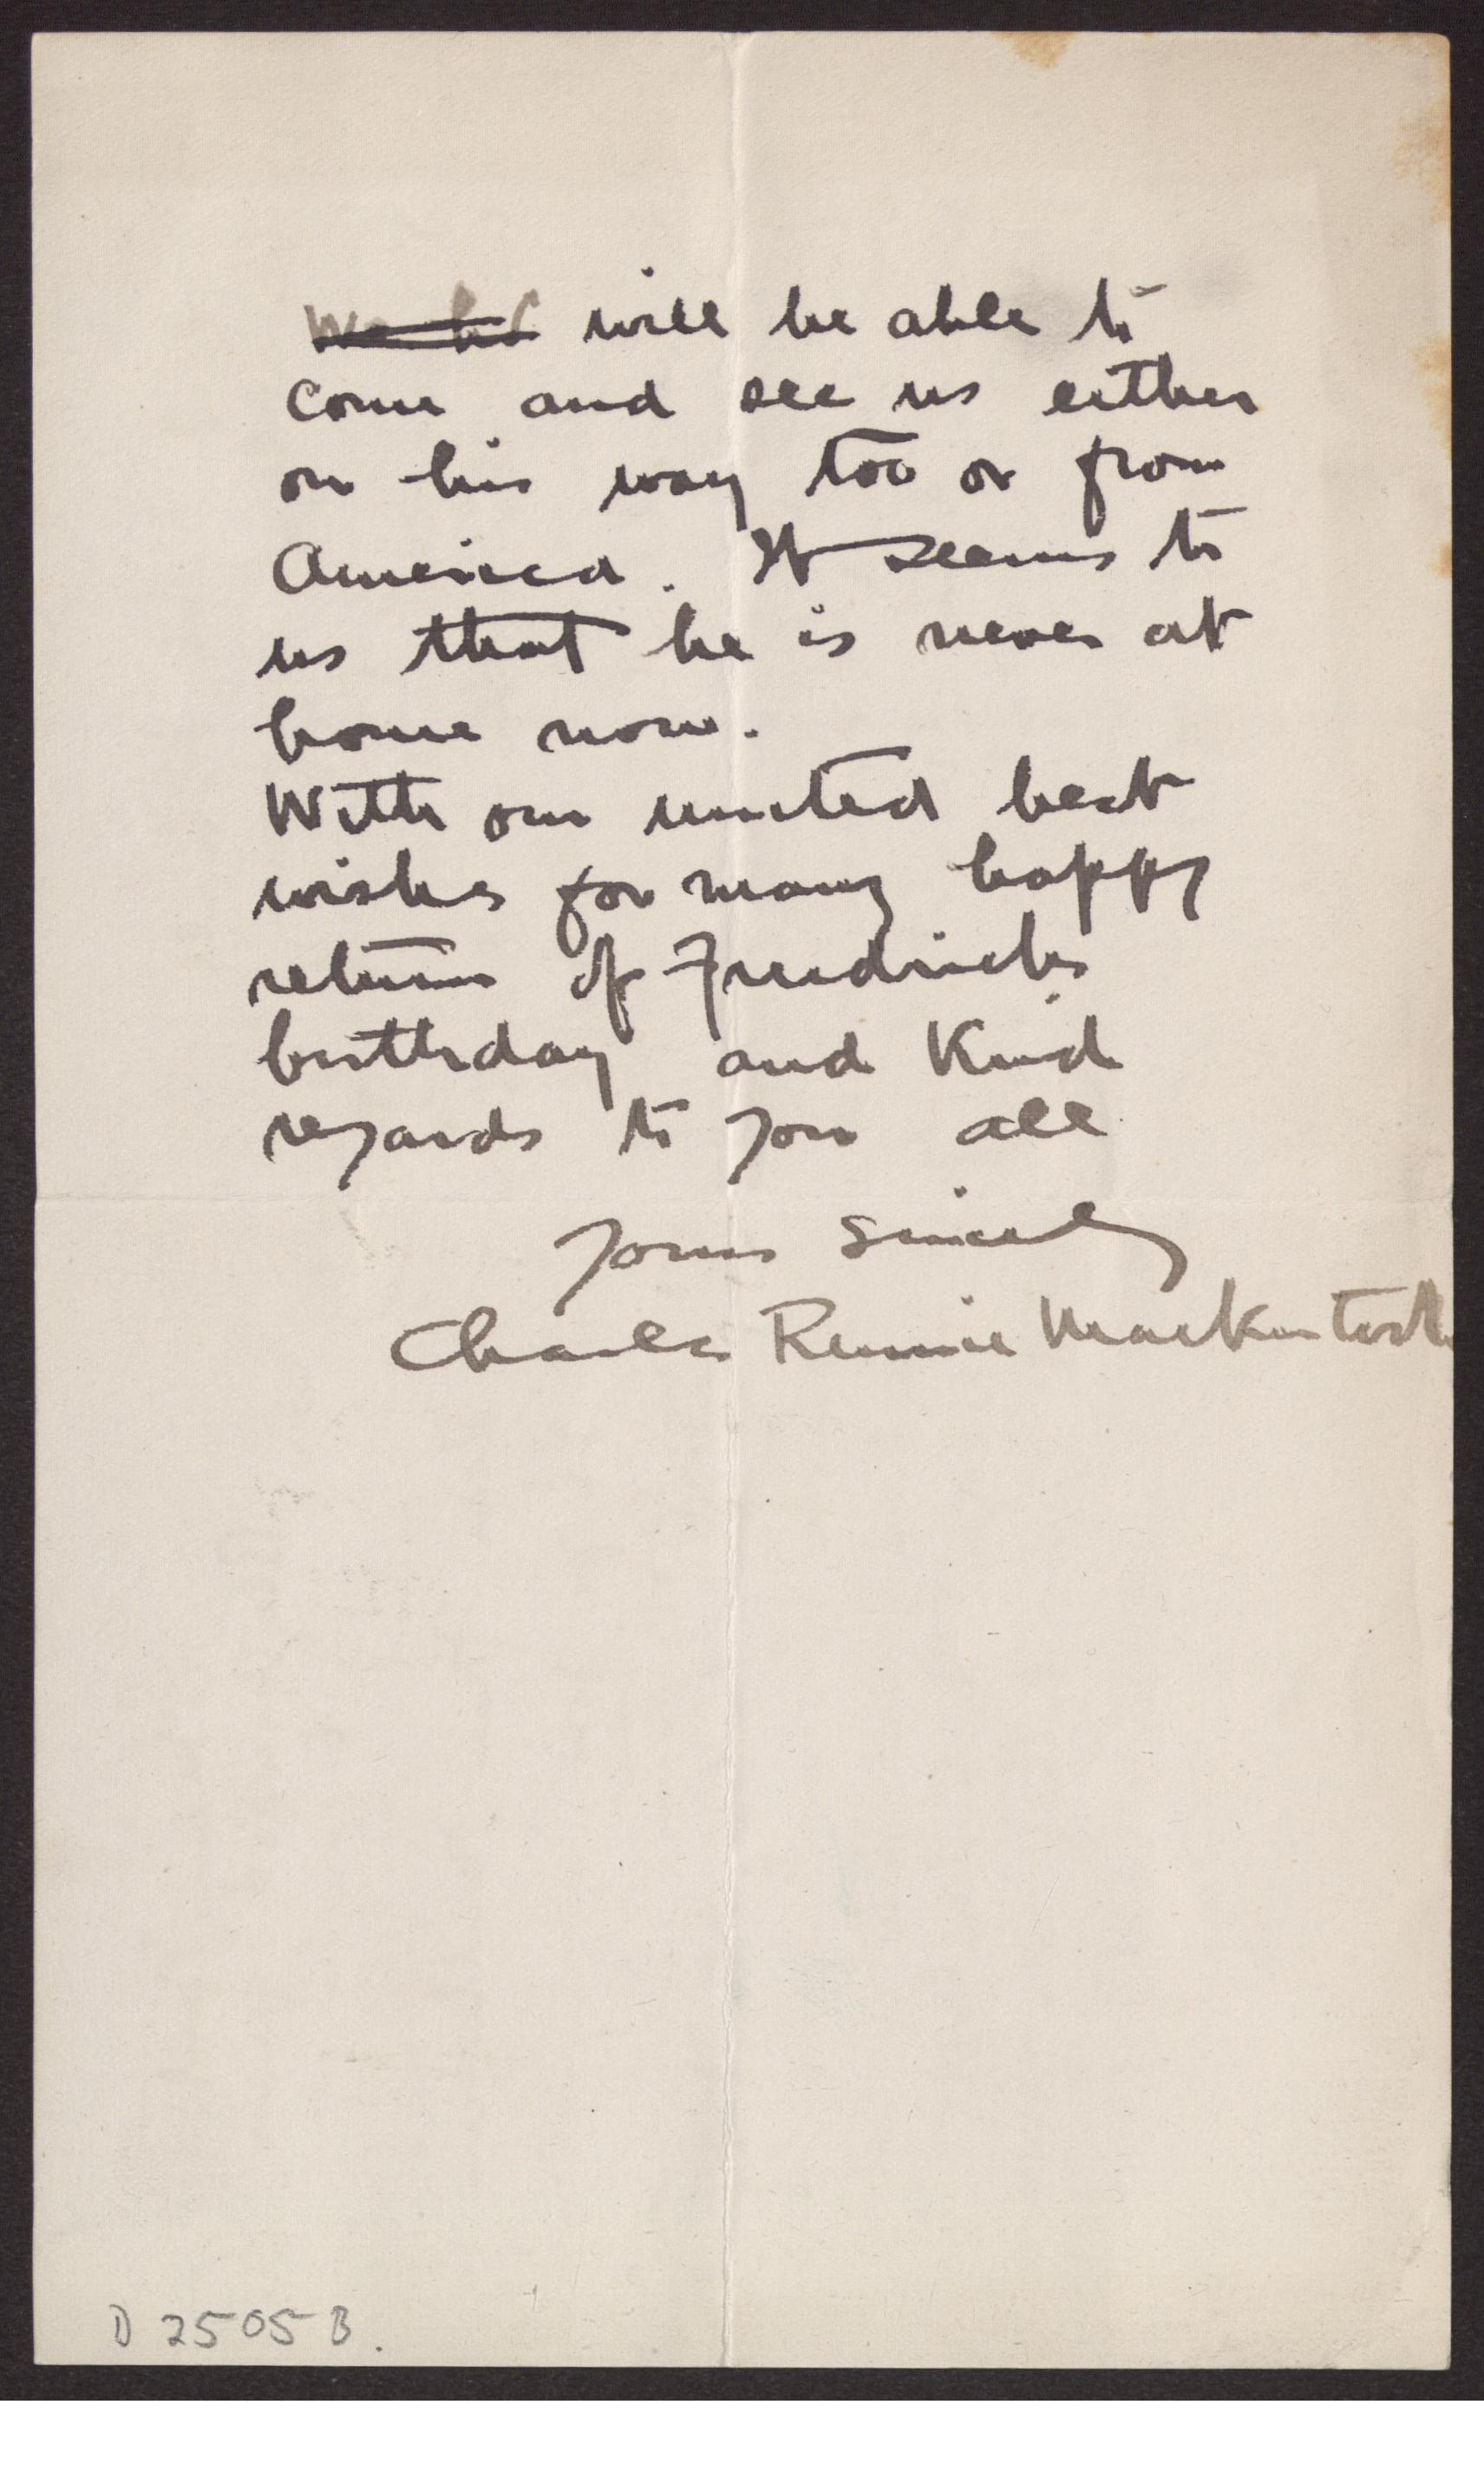 will be able to
come and see us either
on his way too or from
America. It seems to
us that he is never at
home now.
With our united best
wishes for many happy
returns of Freidrichs
birthday and Kind
regards to you all
Yours sincerely
Charles Rennie Mackintosh
D 2505 B.